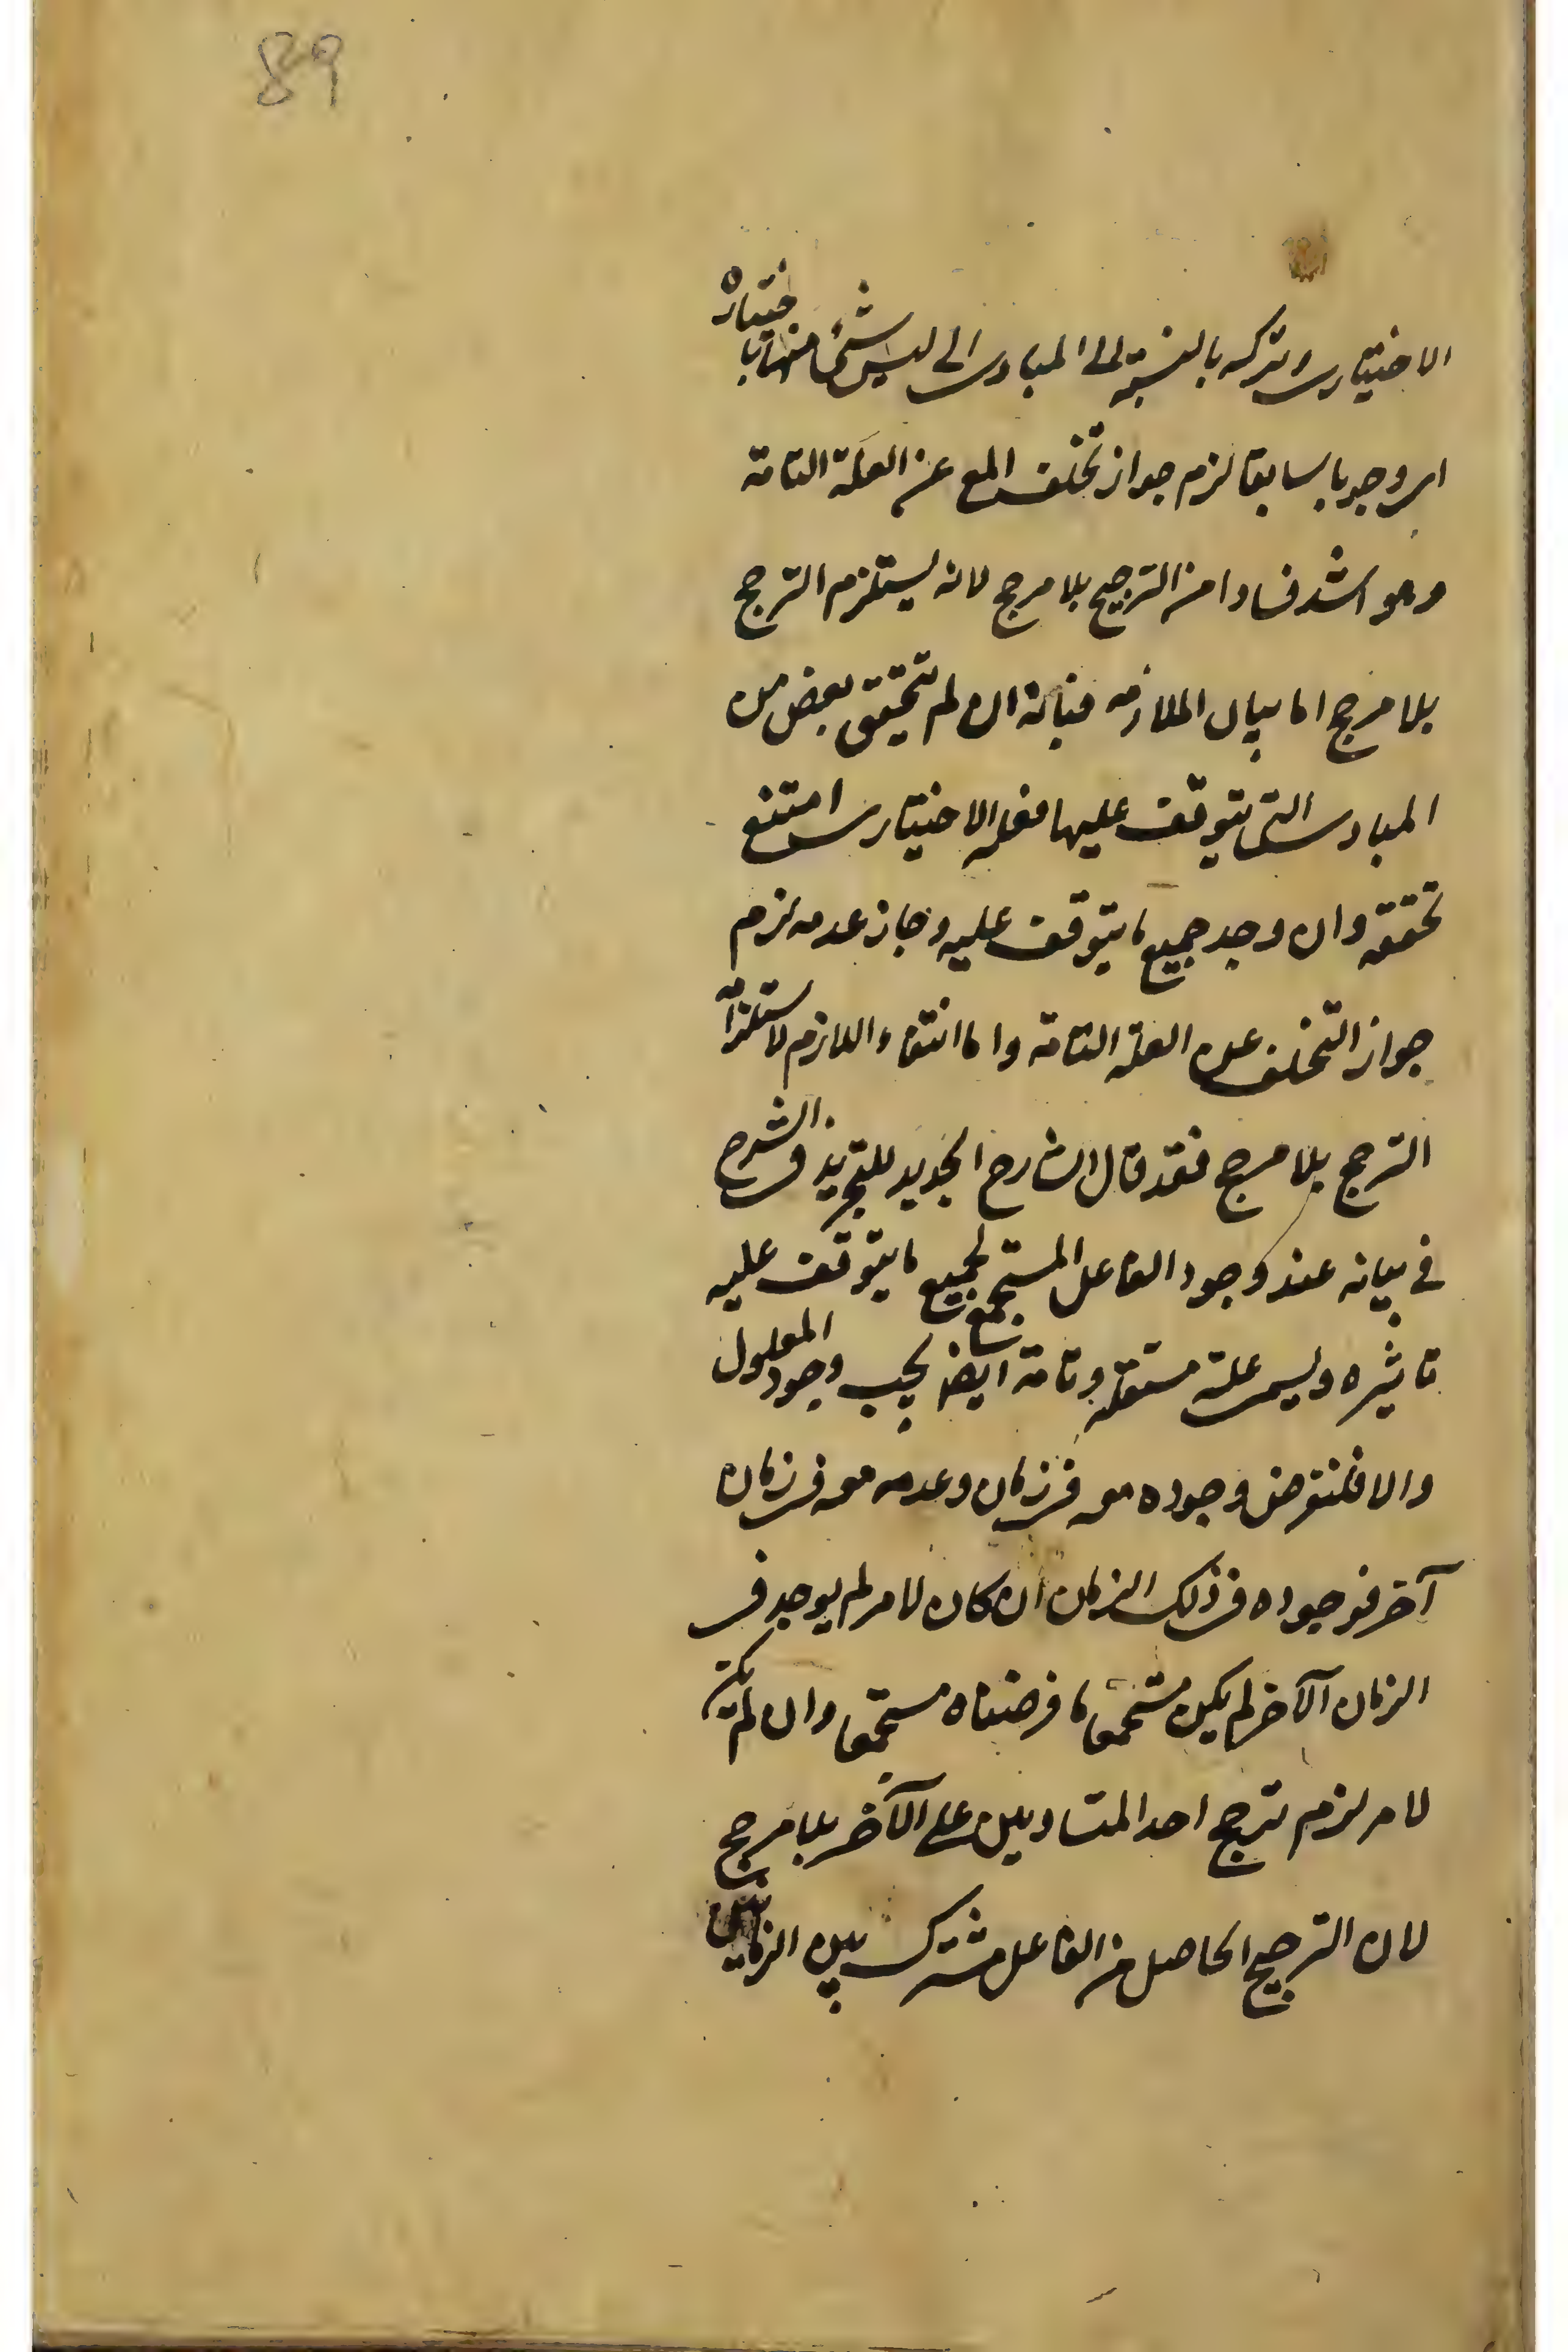 89
الاختياري وتركه بالنسبة الى المبادي الى ليس شئ منها باختياره
اى وجوبا سابقا لزم جواز تخلف المع عن العلة التامة
وهو اشد فسادا من الترجيح بلا مرجح لانه يستلزم الترجح
بلا مرجح اما بيان الملازمه فبانه ان لم تتحقق بعض من
المبادي التي يتوقف عليها فعله الاختياري امتنع
تحققه وان وجد جميع ما يتوقف عليه وجاز عدمه لزم
جواز التخلف عن العلة التامة واما انتفاء اللازم لاستلزامه
الترجح بلا مرجح فقد قال الشارح الجديد للتجريد في الشرح
في بيانه عند وجود الفاعل المستجمع لجميع ما يتوقف عليه
تاثيره ويسمى علة مستقلة وتامة ايضا يجب وجود المعلول
والا فلنفرض وجوده معه في زمان وعدمه معه في زمان
آخر فوجوده في ذلك الزمان ان كان لامر لم يوجد في
الزمان الآخر لم يكن مستجمعا ما فرضناه مستجمعا وان لم يكن
لامر لزم ترجح احد المتساويين على الآخر بلا مرجح
لان الترجيح الحاصل من الفاعل مشترك بين الزمانين